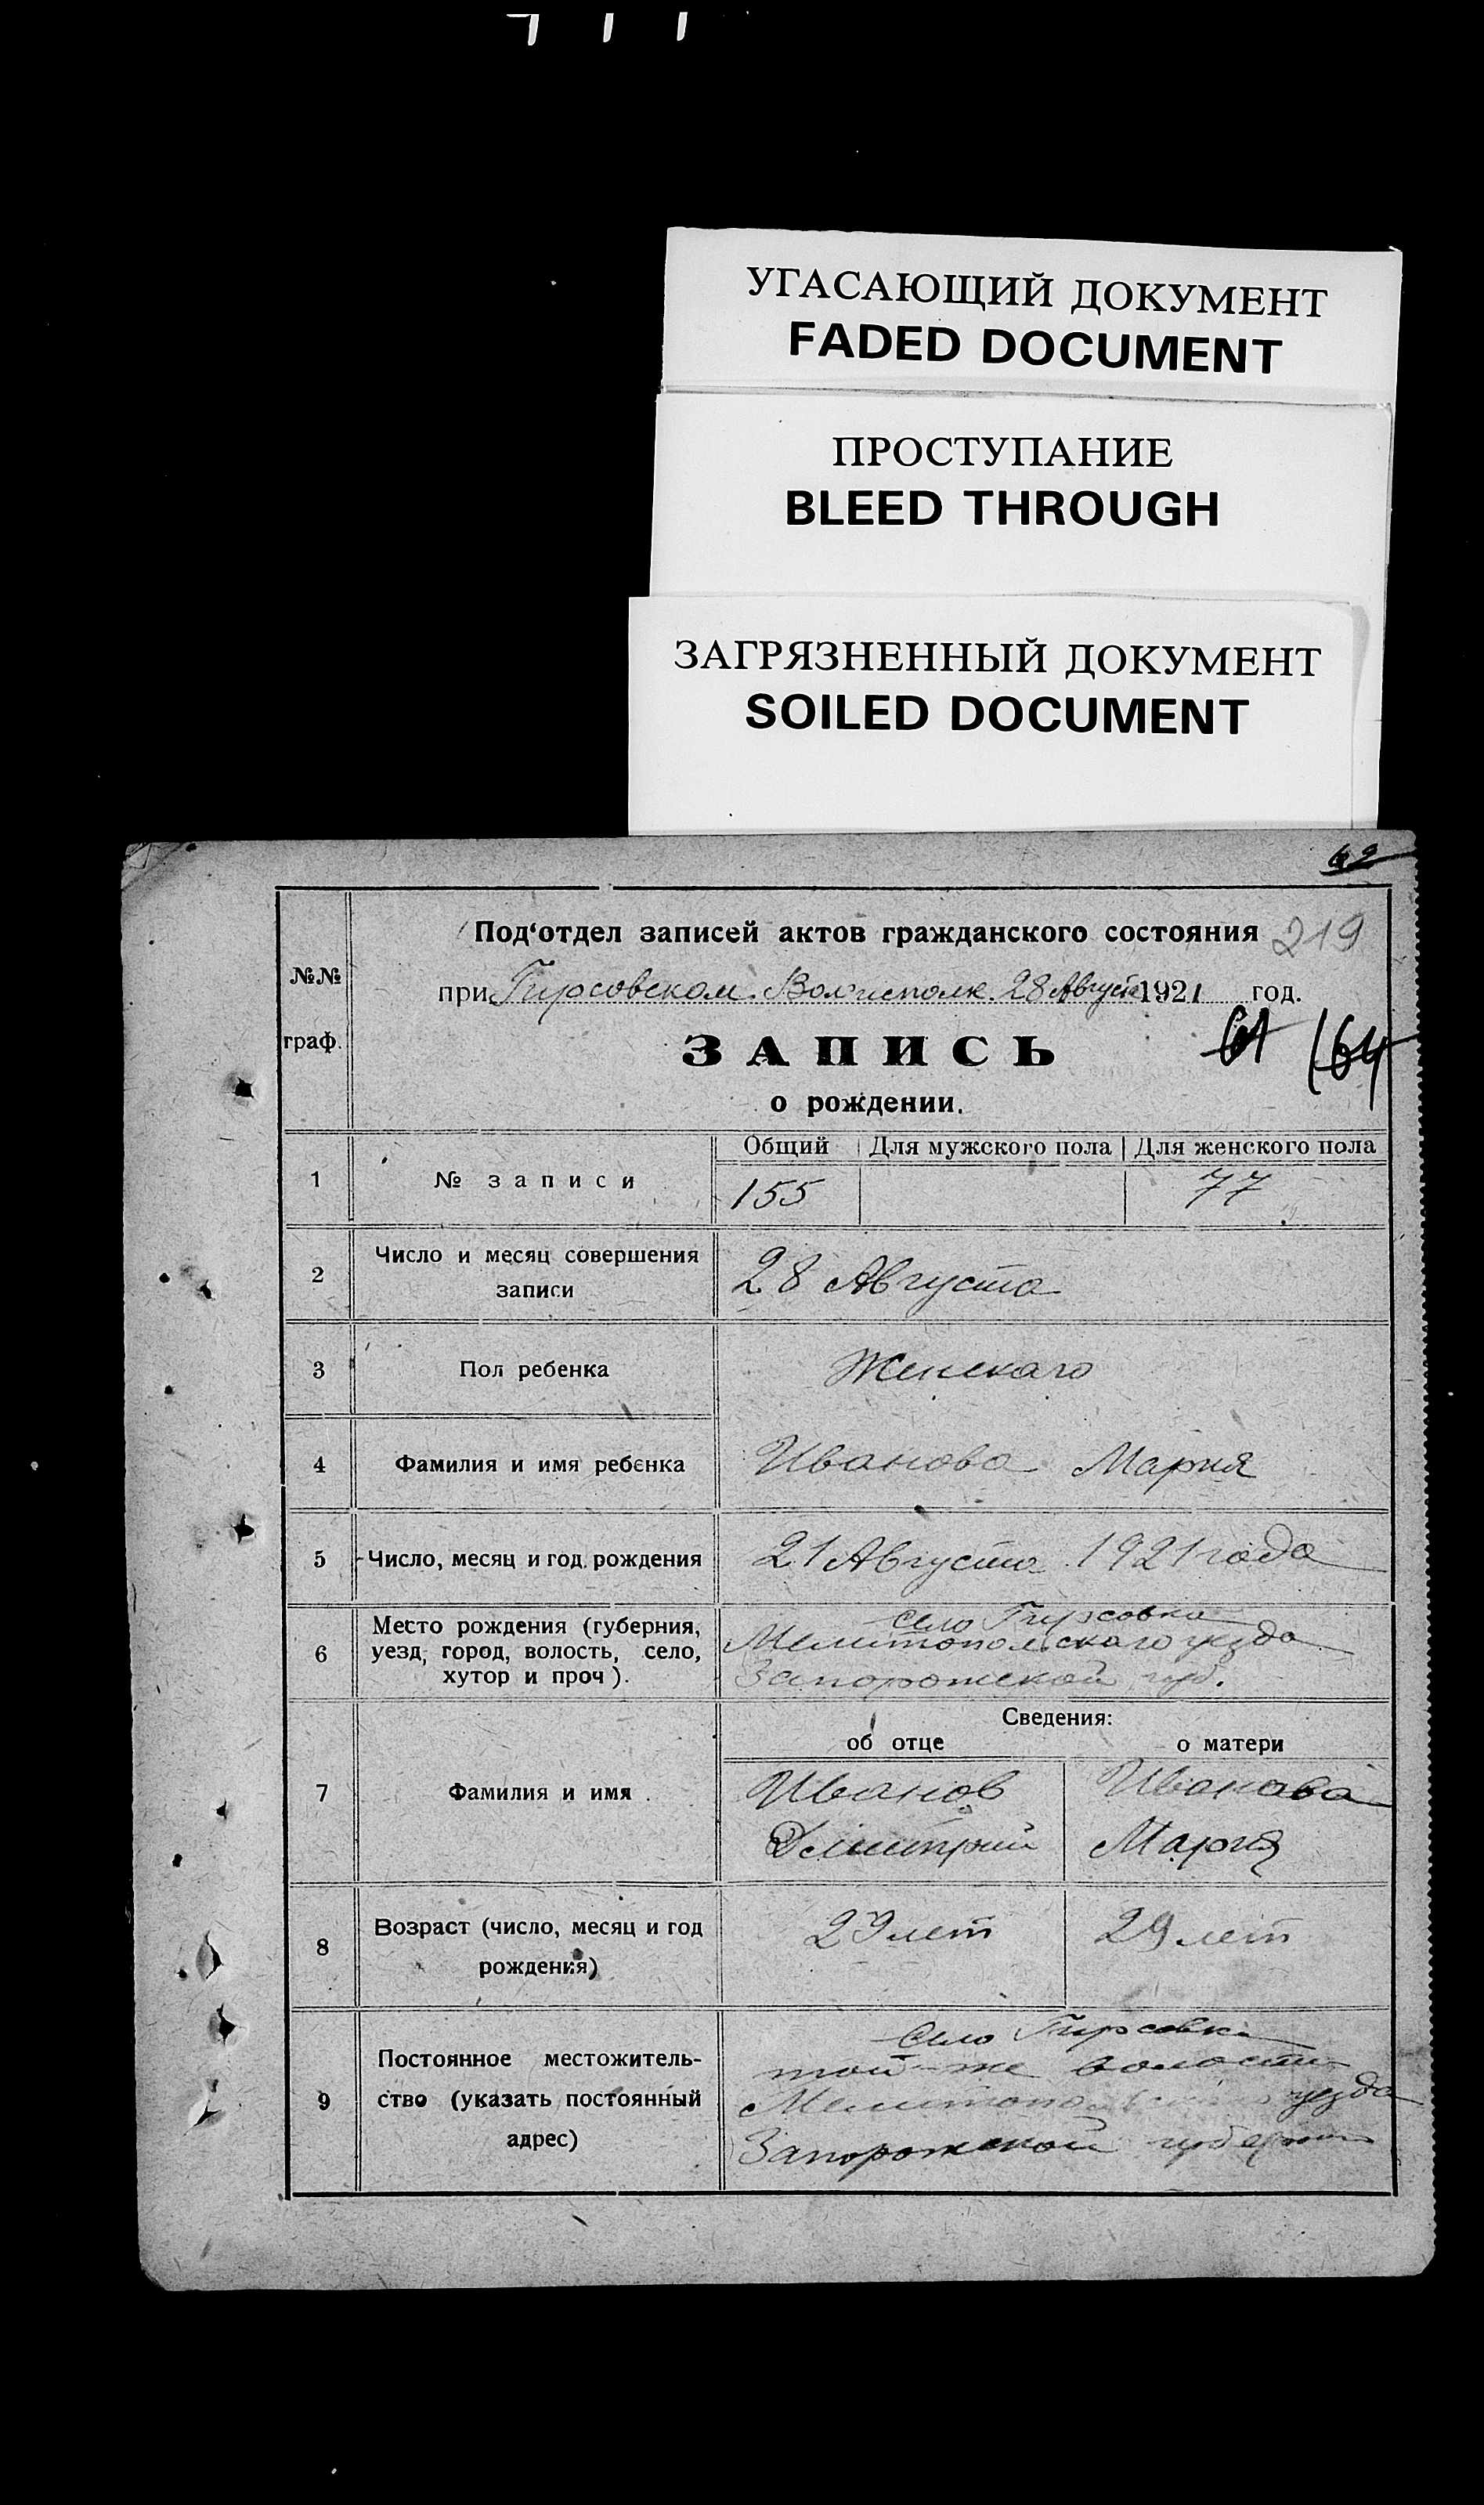 УГАСАЮЩИЙ ДОКУМЕНТ
FADED DOCUMENT
ПРОСТУПАНИЕ
BLEED THROUGH
ЗАГРЯЗНЕННЫЙ ДОКУМЕНТ
SOILED DOCUMENT
62
Под'отдел записей актов гражданского состояния 219
№№
при Гирсовском Волисполк. 28 Августа 1921 год.
граф.
ЗАПИСЬ 61 64
о рождении.
Общий Для мужского пола Для женского пола
1 № записи 155 77
2 Число и месяц совершения
записи
28 Августа
3 Пол ребенка Женскаго
4 Фамилия и имя ребенка Иванова Мария
5 Число, месяц и год рождения 21 Августа 1921 года
6 Место рождения (губерния,
уезд, город, волость, село,
хутор и проч).
село Гирсовка
Мелитопольскаго уезда
Запорожской губ.
Сведения:
об отце о матери
7 Фамилия и имя
Иванов Иванова
Дмитрий Мария
8 Возраст (число, месяц и год
рождения)
29 лет 29 лет
9 Постоянное местожитель-
ство (указать постоянный
адрес)
Село Гирсовка
той-же волости
уезда
Запорожской губернии